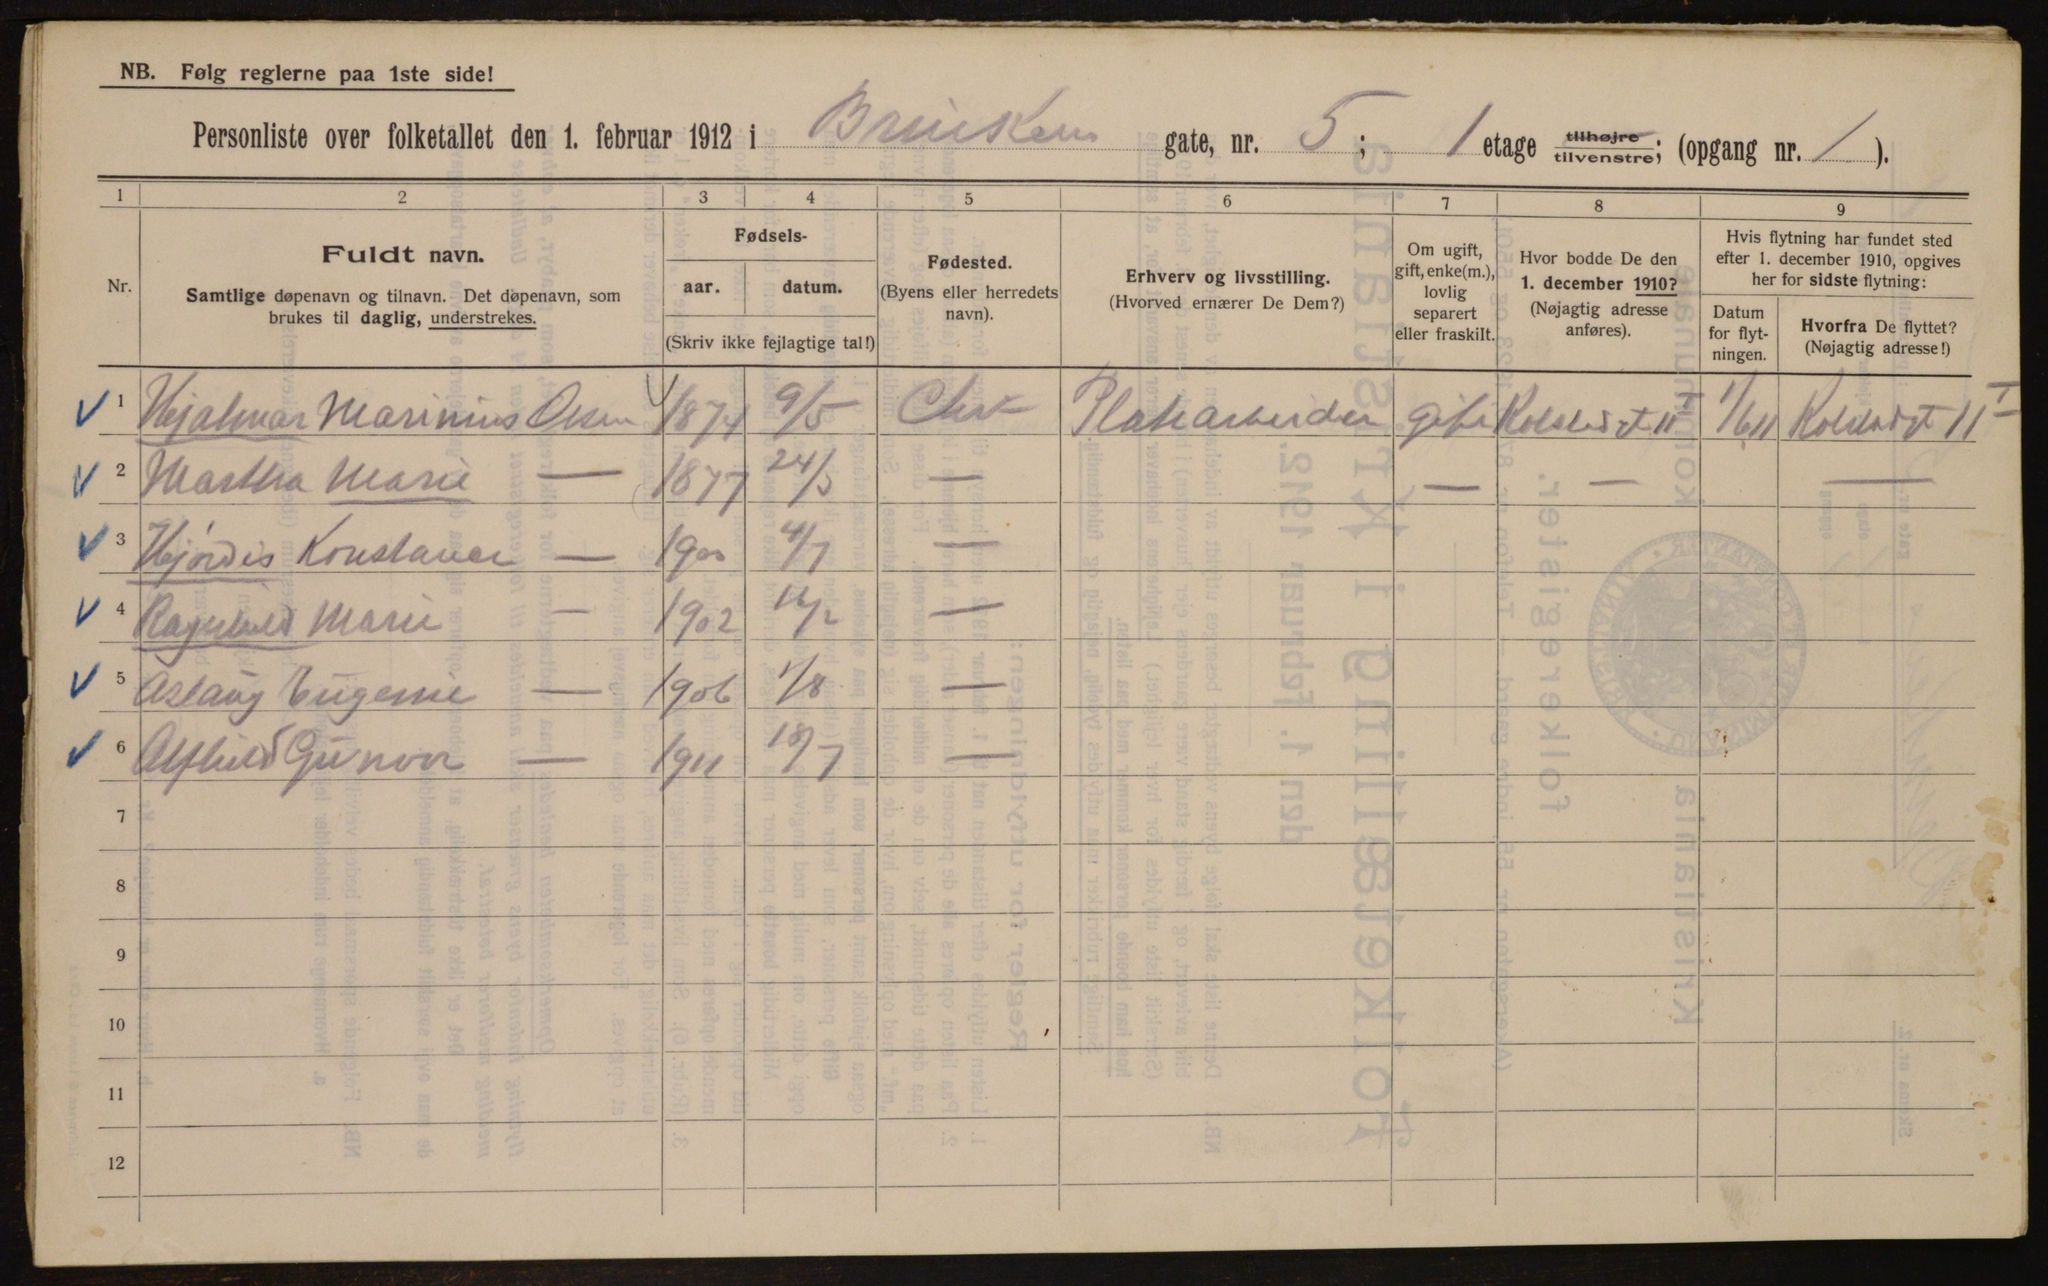 NB. Følg reglerne paa 1ste side!
Personliste over folketallet den 1. februar 1912 i Brinkens gate, nr. 5; 1 etage tilhøjre tilvenstre; (opgang nr. 1).
1 2 3 4 5 6 7 8 9
Nr.
Fuldt navn.
Samtlige døpenavn og tilnavn. Det døpenavn, som
brukes til daglig, understrekes.
Fødsels-
aar. datum.
(Skriv ikke fejlagtige tal!)
Fødested.
(Byens eller herredets
navn).
Erhverv og livsstilling.
(Hvorved ernærer De Dem?)
Om ugift,
gift, enke(m.),
lovlig
separert
eller fraskilt.
Hvor bodde De den
1. december 1910?
(Nøjagtig adresse
anføres).
Hvis flytning har fundet sted
efter 1. december 1910, opgives
her for sidste flytning:
Datum
for flyt-
ningen.
Hvorfra De flyttet?
(Nøjagtig adresse!)
1 Hjalmar Marinius Olsen 1874 9/5 Chr Platearbeider gift Kolstadgt 11 I 1/6 11 Kolstadgt 11 I
2 Martha Marie — 1877 24/5 — — — —
3 Hjørdis Konstance — 1900 4/7 —
4 Ragnhild Marie — 1902 —
5 Aslaug Eugenie — 1906 1/8 —
6 Alfhild Gunvor — 1911 18/7 —
7
8
9
10
11
12